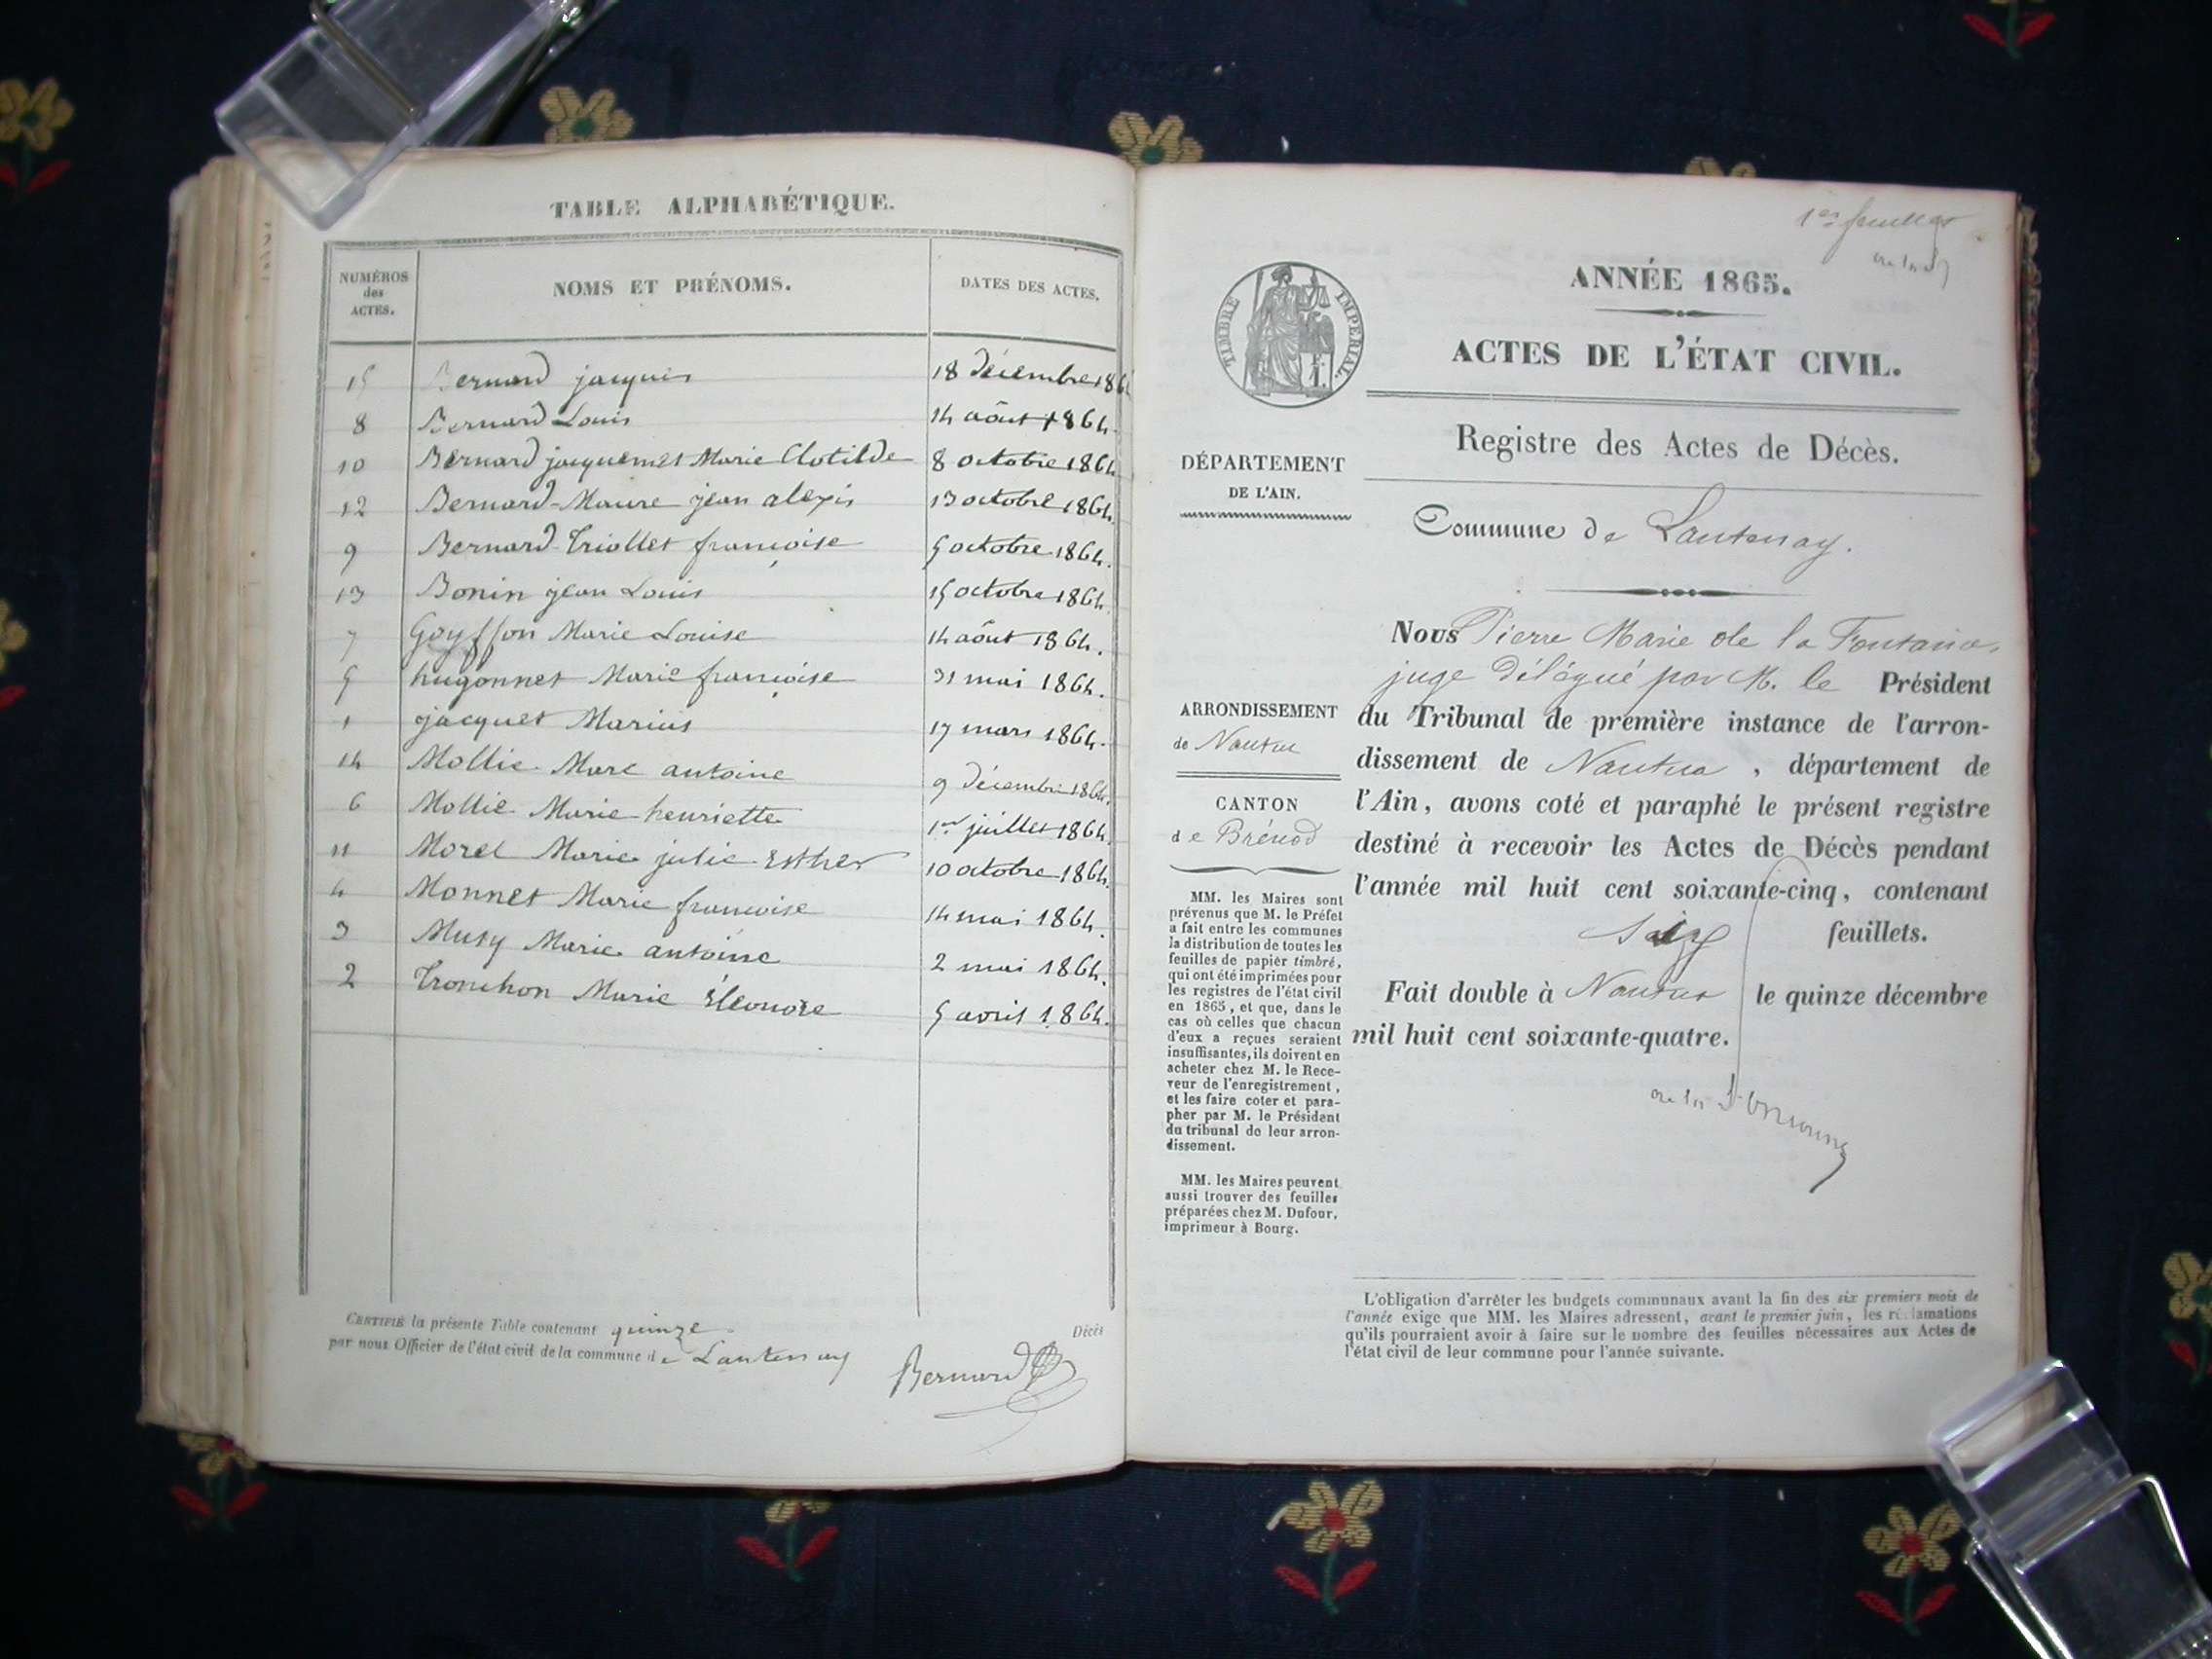 TABLE ALPHABÉTIQUE.
NUMÉROS
des
ACTES.
NOMS ET PRÉNOMS.
DATES DES ACTES.
15 Bernard jacques 18 décembre 186
8 Bernard Louis 14 août 1864.
10 Bernard jacquemet Marie Clotilde 8 octobre 1864
12 Bernard-Maure jean alexis 13 octobre 1864.
9 Bernard-Triollet françoise 5 octobre 1864.
13 Bonin jean Louis 15 octobre 1864.
7 Goyffon Marie Louise 14 août 1864.
5 hugonnet Marie françoise 31 mai 1864.
1 jacquet Marius 17 mars 1864.
14 Mollie Marc antoine 9 décembre 1864.
6 Mollie Marie henriette 1er juillet 1864.
11 Morel Marie julie Esther 10 octobre 1864.
4 Monnet Marie françoise 14 mai 1864.
3 Musy Marie antoine 2 mai 1864.
2 Tronchon Marie Éléonore 5 avril 1864.
CERTIFIÉ la présente Table contenant quinze Décès
par nous Officier de l'état civil de la commune de Lantenay
Bernard
1er feuillet
ANNÉE 1865.
TIMBRE IMPÉRIAL.
ACTES DE L'ÉTAT CIVIL.
Registre des Actes de Décès.
DÉPARTEMENT
DE L'AIN.
Commune de Lantenay.
Nous Pierre Marie de la Fontaine,
juge délégué par M. le Président
du Tribunal de première instance de l'arron-
dissement de Nantua, département de
l'Ain, avons coté et paraphé le présent registre
destiné à recevoir les Actes de Décès pendant
l'année mil huit cent soixante-cinq, contenant
feuillets.
Fait double à Nantua le quinze décembre
mil huit cent soixante-quatre.
ARRONDISSEMENT
de Nantua
CANTON
de Brénod
MM. les Maires sont
prévenus que M. le Préfet
a fait entre les communes
la distribution de toutes les
feuilles de papier timbré,
qui ont été imprimées pour
les registres de l'état civil
en 1865, et que, dans le
cas où celles que chacun
d'eux a reçues seraient
insuffisantes, ils doivent en
acheter chez M. le Rece-
veur de l'enregistrement,
et les faire coter et para-
pher par M. le Président
du tribunal de leur arron-
dissement.
MM. les Maires peuvent
aussi trouver des feuilles
préparées chez M. Dufour,
imprimeur à Bourg.
L'obligation d'arrêter les budgets communaux avant la fin des six premiers mois de
l'année exige que MM. les Maires adressent, avant le premier juin, les réclamations
qu'ils pourraient avoir à faire sur le nombre des feuilles nécessaires aux Actes de
l'état civil de leur commune pour l'année suivante.